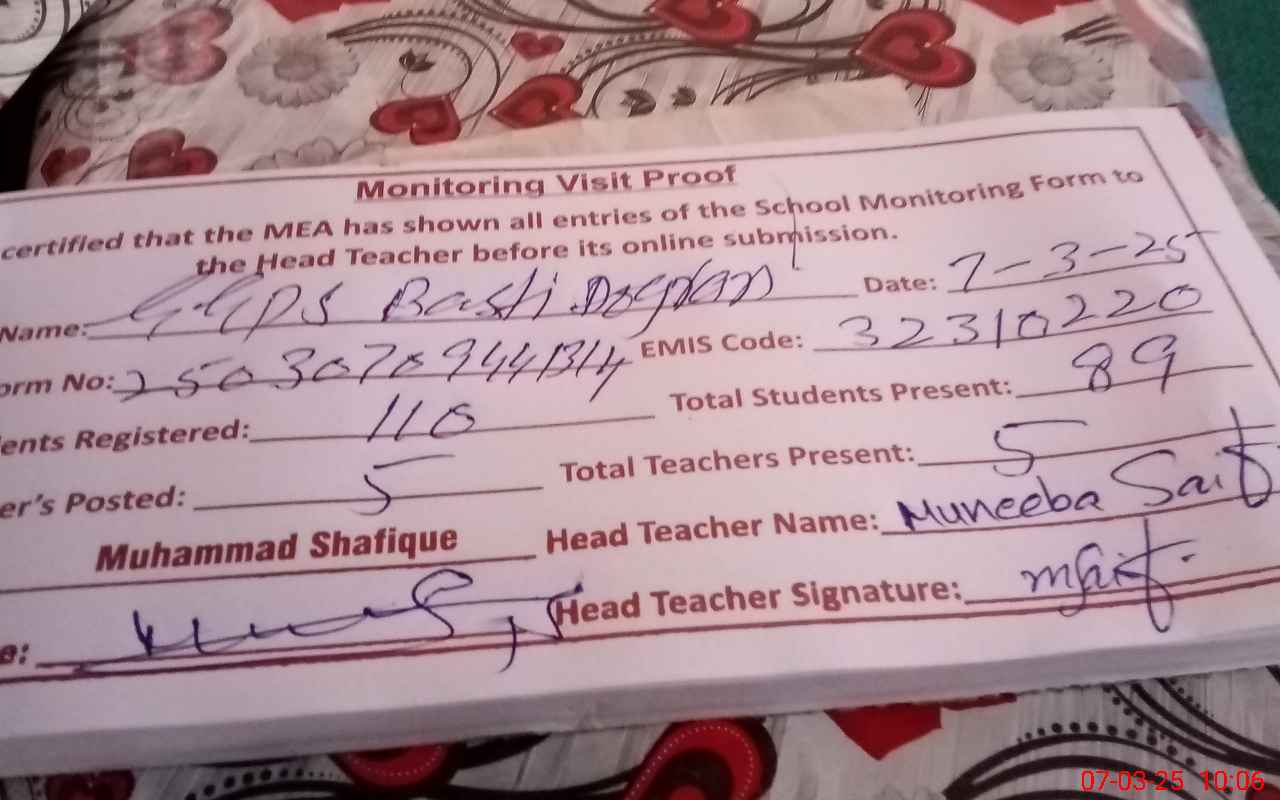 Monitoring Visit Proof
certified that the MEA has shown all entries of the School Monitoring Form to
the Head Teacher before its online submission.
Name: GGPS Basti Date: 7-3-25
orm No: EMIS Code: 32310220
ents Registered: 110 Total Students Present: 89
er's Posted: 5 Total Teachers Present: 5
Muhammad Shafique Head Teacher Name: Muneeba Saif
e: Head Teacher Signature:
07-03-25 10:06